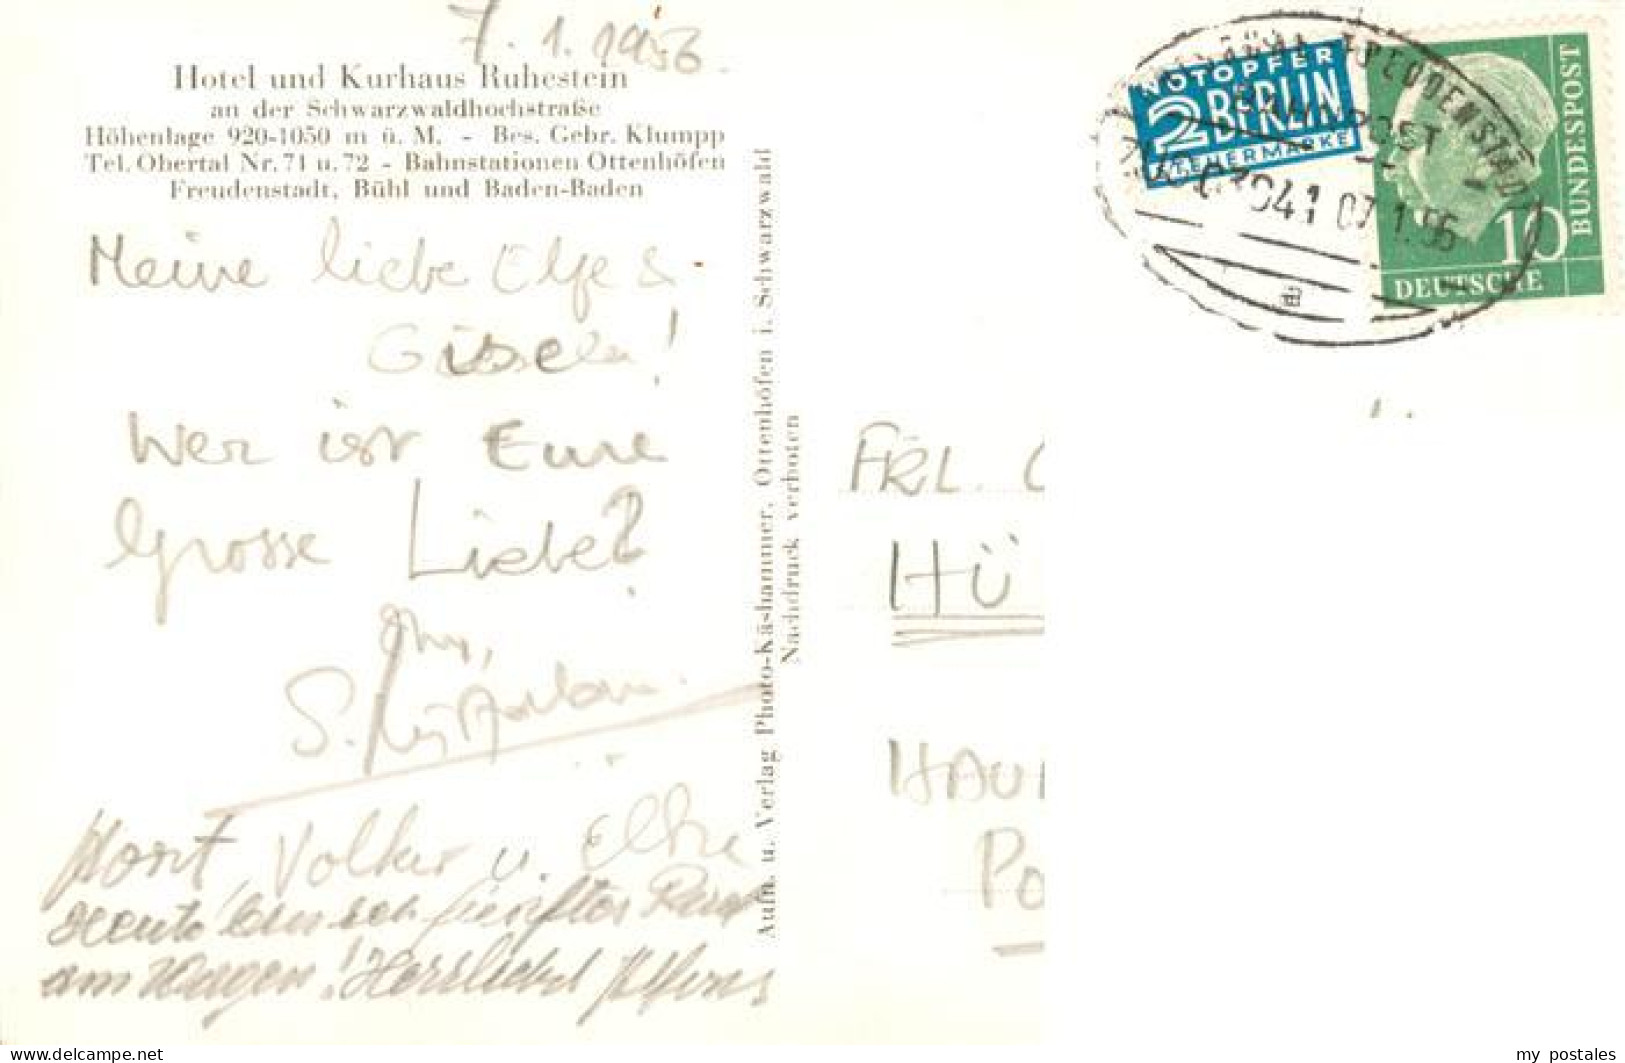 7. 1. 1956
Hotel und Kurhaus Ruhestein
an der Schwarzwaldhochstraße
Höhenlage 920-1050 m ü. M. - Bes. Gebr. Klumpp
Tel. Obertal Nr. 71 u. 72 - Bahnstationen Ottenhöfen
Freudenstadt, Bühl und Baden-Baden
Meine liebe Elfe &
Gisela!
Wer ist Eure
Grosse Liebe?
Horst Volker u. Elke
Heute bin ich fünftes Rad
am Wagen! Herzlichst
Aufn. u. Verlag Photo-Käshammer, Ottenhöfen i. Schwarzwald
Nachdruck verboten
NOTOPFER
2 BERLIN
STEUERMARKE
FREUDENSTADT
BAHNPOST
07.1.56
a
BUNDESPOST
10
DEUTSCHE
FRL. 
HÜ
HAU
PO
my_postales